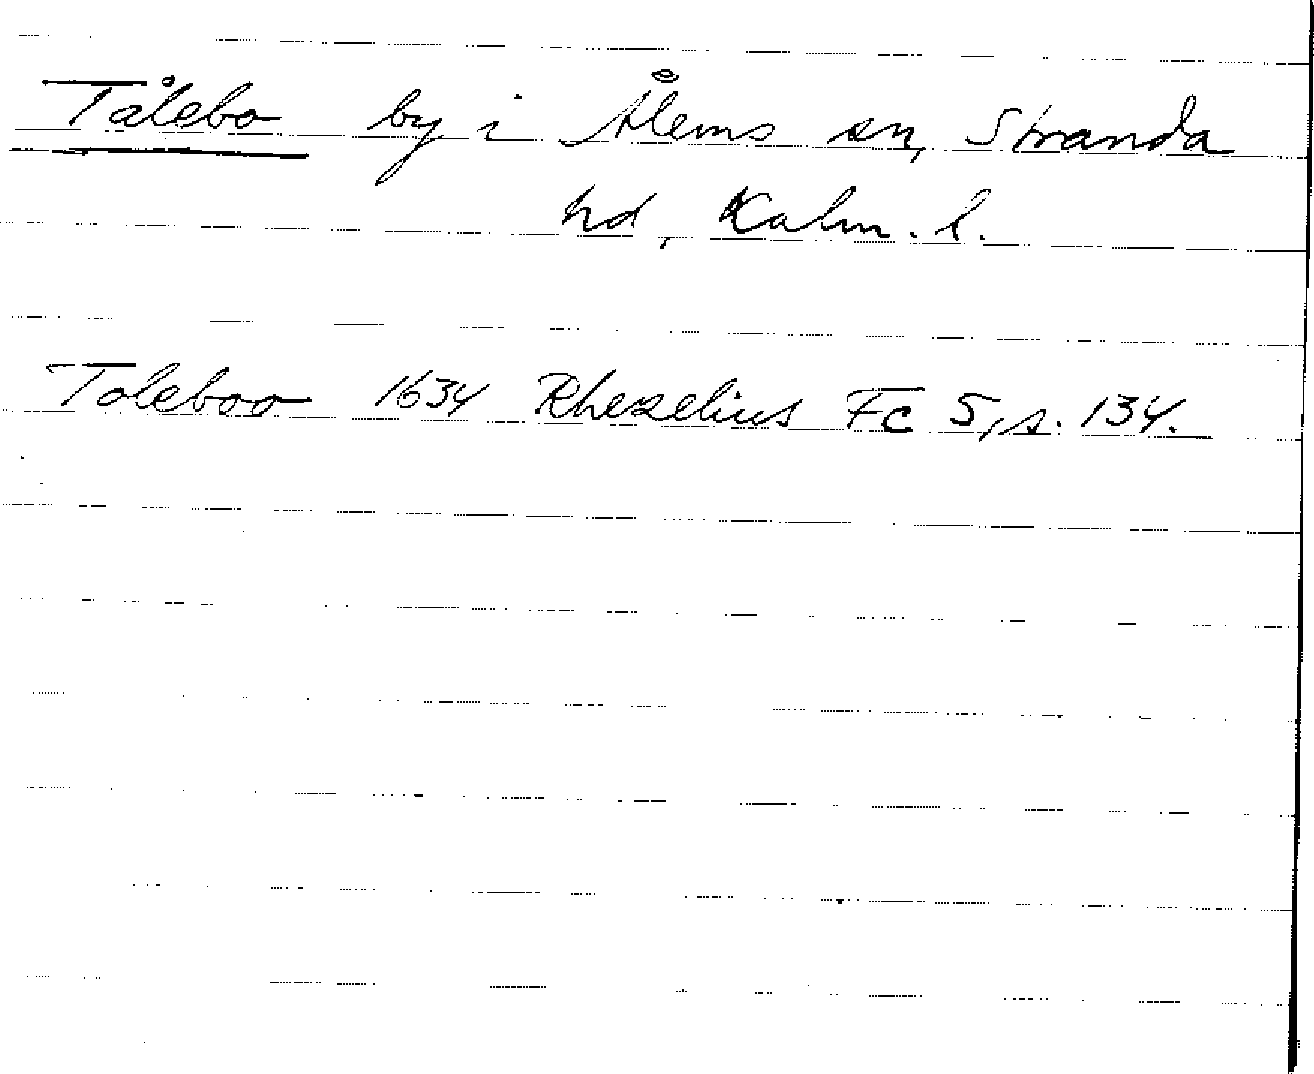 Tålebo by i Ålems sn, Stranda
hd, Kalm. l.
Toleboo 1634 Rhezelius Fc 5, s. 134.